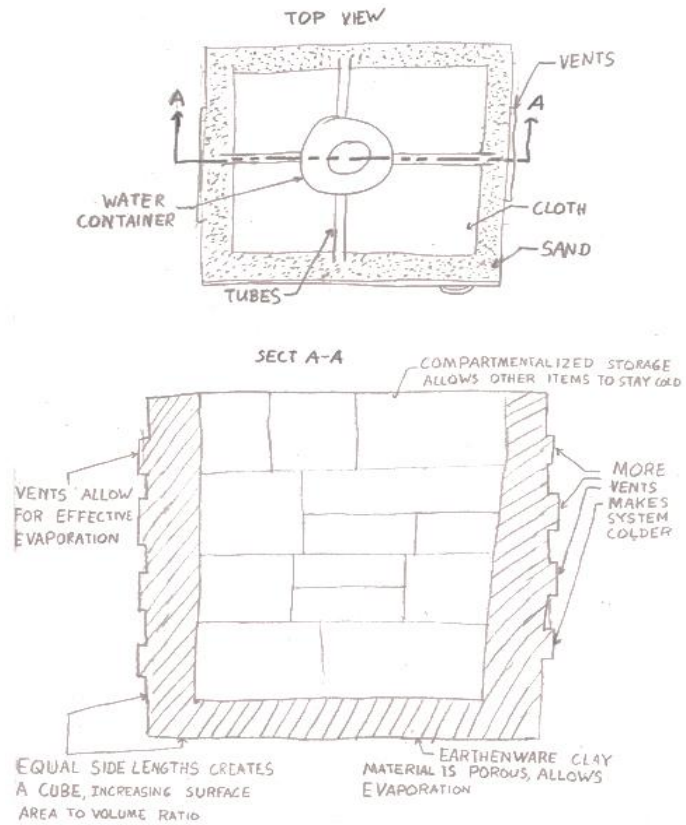 TOP VIEW
VENTS
A
A
WATER
CONTAINER
CLOTH
SAND
TUBES
SECT A-A
COMPARTMENTALIZED STORAGE
ALLOWS OTHER ITEMS TO STAY COLD
VENTS ALLOW
FOR EFFECTIVE
EVAPORATION
MORE
VENTS
MAKES
SYSTEM
COLDER
EQUAL SIDE LENGTHS CREATES
A CUBE, INCREASING SURFACE
AREA TO VOLUME RATIO
EARTHENWARE CLAY
MATERIAL IS POROUS, ALLOWS
EVAPORATION